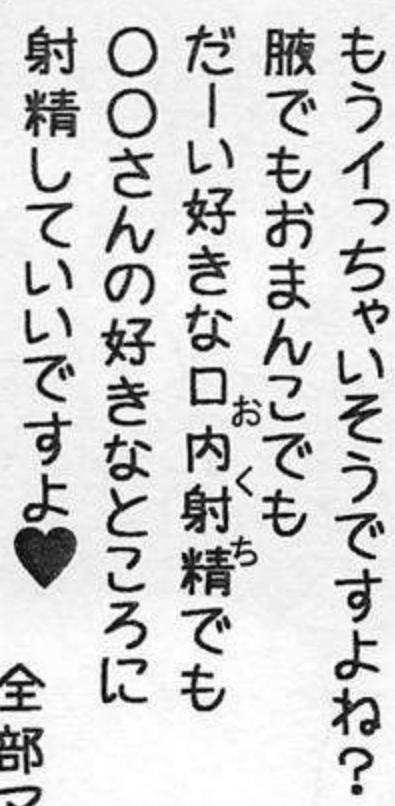 もうイっちゃいそうですよね？
腋でもおまんこでも
だーい好きな口内射精でも
おくち
〇〇さんの好きなところに
射精していいですよ♥
全部